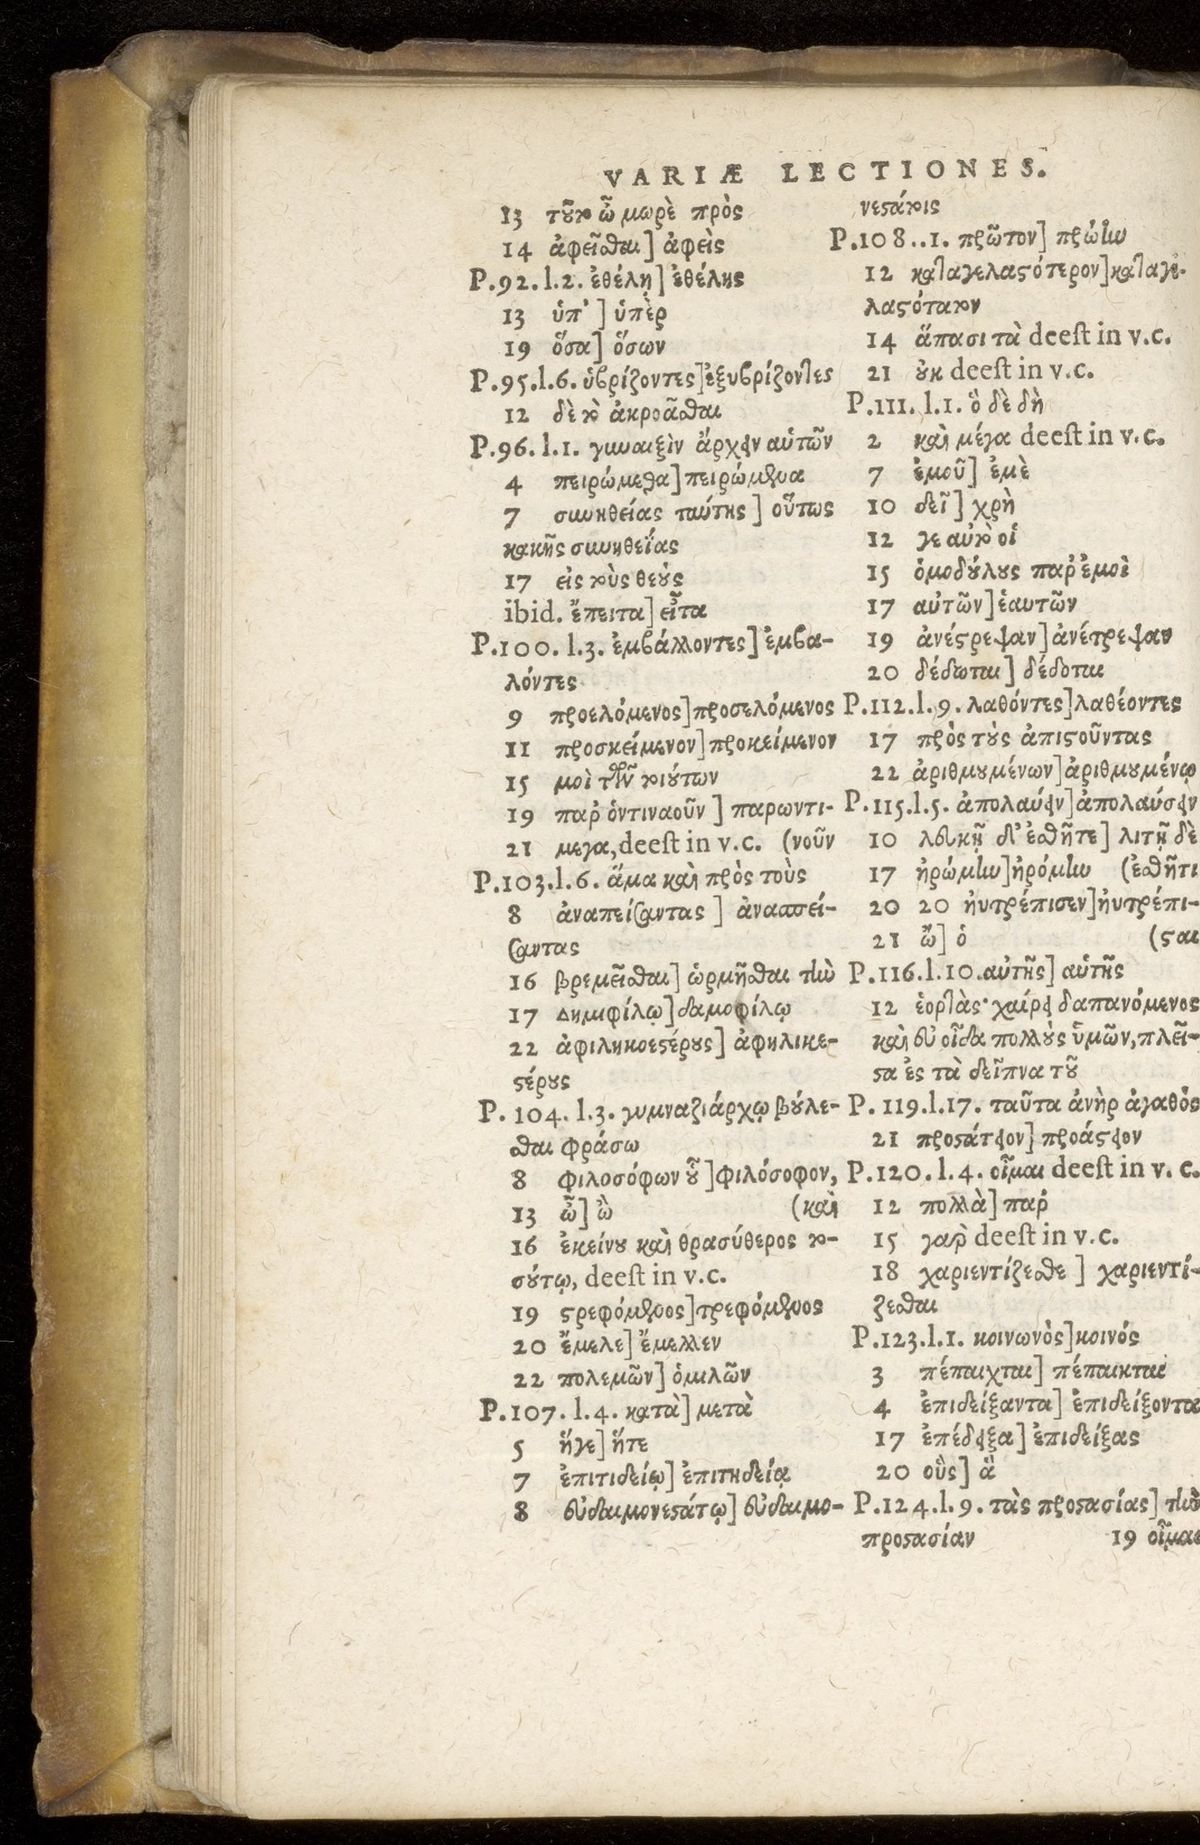 VARIÆ LECTIONES.
13 τοῦτο ὦ μωρὲ πρὸς
14 ἀφεῖσθαι] ἀφεὶς
P.92. l.2. ἐθέλῃ] ἐθέλῃς
13 ὑπ'] ὑπὲρ
19 ὅσα] ὅσων
P.95.l.6. ὑβρίζοντες] ἐξυβρίζοντες
12 δὲ τὸ ἀκροᾶσθαι
P.96. l.1. γυναιξὶν ἄρχειν αὐτῶν
4 πειρώμεθα] πειρώμενα
7 συνηθείας ταύτης] οὕτως
κακῆς συνηθείας
17 εἰς τοὺς θεούς
ibid. ἔπειτα] εἶτα
P.100. l.3. ἐμβάλλοντες] ἐμβα-
λόντες
9 προελόμενος] προσελόμενος
11 προσκείμενον] προκείμενον
15 μοὶ τῶν τοιούτων
19 παρ' ὁντιναοῦν] παρωντι-
21 μεγα, deest in v.c. (νοῦν
P.103.l.6. ἅμα καὶ πρὸς τοὺς
8 ἀναπείσαντας] ἀνασπεί-
σαντας
16 βρεμεῖσθαι] ὡρμῆσθαι τὴν
17 Δημιφίλῳ] δαμοφίλῳ
22 ἀφιληκοεστέρους] ἀφηλικε-
στέρους
P. 104. l.3. γυμναζιάρχῳ βούλε-
σθαι φράσω
8 φιλοσόφων οὗ] φιλόσοφον,
13 ὦ] ὢ (καὶ
16 ἐκείνου καὶ θρασύθερος το-
σούτῳ, deest in v.c.
19 στρεφόμενος] τρεφόμενος
20 ἔμελε] ἔμελλεν
22 πολεμῶν] ὁμιλῶν
P.107. l.4. κατὰ] μετὰ
5 ἥγε] ἥτε
7 ἐπιτιδείῳ] ἐπιτηδείᾳ
8 εὐδαιμονεστάτῳ] εὐδαιμο-
νεστάτοις
P.108..1. πρῶτον] πρώην
12 καταγελαστότερον] καταγε-
λαστότατον
14 ἅπασι τὰ deest in v.c.
21 οὐκ deest in v.c.
P.111. l.1. ὃ δὲ δὴ
2 καὶ μέγα deest in v.c.
7 ἐμοῦ] ἐμὲ
10 δεῖ] χρὴ
12 γε αὐτὸ οἱ
15 ὁμοδούλους παρ' ἐμοὶ
17 αὐτῶν] ἑαυτῶν
19 ἀνέστρεψαν] ἀνέτρεψαν
20 δέδωται] δέδοται
P.112.l.9. λαθόντες] λαθέοντες
17 πρὸς τοὺς ἀπιστοῦντας
22 ἀριθμουμένων] ἀριθμουμένῳ
P.115.l.5. ἀπολαύειν] ἀπολαύσειν
10 λευκῇ δ' ἐσθῆτε] λιτῇ δὲ
17 ἠρώμην] ἠρόμην (ἐσθῆτι
20 20 ηὐτρέπισεν] ηὐτρέπι-
21 ὦ] ὁ (σται
P.116.l.10. αὐτῆς] αὑτῆς
12 ἑορτὰς· χαίρει δαπανόμενος
καὶ εὖ οἶδα πολλοὺς ὑμῶν, πλεῖ-
στα ἐς τὰ δεῖπνα τοῦ
P. 119.l.17. ταῦτα ἀνὴρ ἀγαθὸς
21 προστάτειον] προάστειον
P.120. l.4. οἶμαι deest in v. c.
12 πολλὰ] παρ'
15 γὰρ deest in v.c.
18 χαριεντίζεσθε] χαριεντί-
ζεσθαι
P.123.l.1. κοινωνὸς] κοινός
3 πέπαιχται] πέπαικται
4 ἐπιδείξαντα] ἐπιδείξοντα
17 ἐπέδειξα] ἐπιδείξας
20 οὓς] ἃ
P.124.l.9. τὰς προστασίας] τὴν
προστασίαν 19 οἶμαι